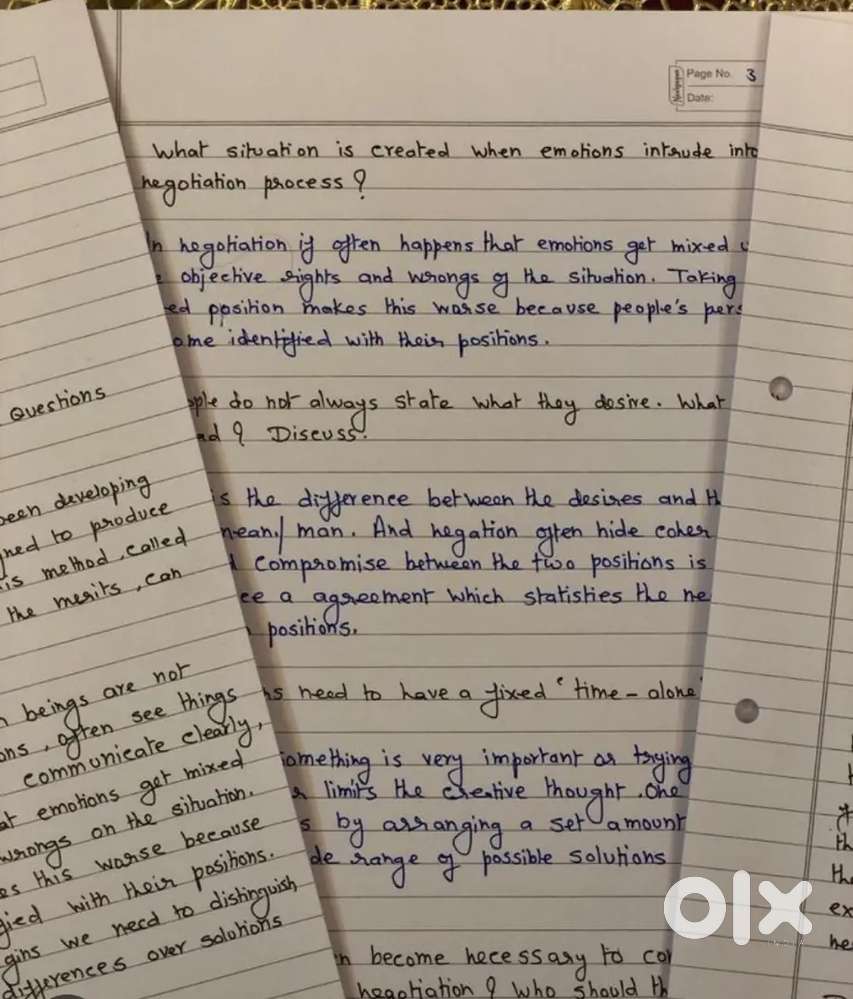 Page No. 3
Date:
What situation is created when emotions intrude into
negotiation process ?
In negotiation if often happens that emotions get mixed
objective rights and wrongs of the situation. Taking
position makes this worse because people's pers
ome identified with their positions.
ople do not always state what they desire. What
ad ? Discuss.
is the difference between the desires and th
mean / man. And negation often hide coher
compromise between the two positions is
ce a agreement which statisties the ne
positions.
ns need to have a fixed 'time - alone'
something is very important or trying
limits the creative thought. One
by arranging a set amount
de range of possible solutions
become necessary to con
negotiation ? Who should th
Questions
been developing
ned to produce
is method, called
the merits, can
beings are not
ons, often see things
communicate clearly,
at emotions get mixed
wrongs on the situation.
es this worse because
fied with their positions.
gins we need to distinguish
differences over solutions
th
the
ex
he
olx